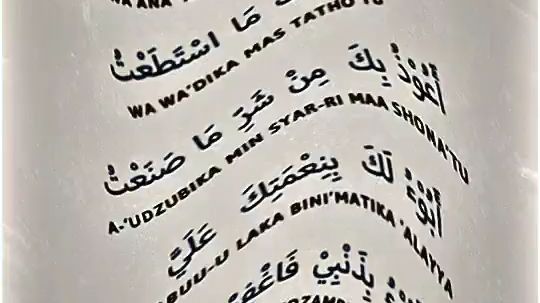 WA ANA
مَا اسْتَطَعْتُ
WA WA'DIKA MAS TATHO'TU
أَعُوْذُ بِكَ مِنْ شَرِّ مَا صَنَعْتُ
A-'UDZUBIKA MIN SYAR-RI MAA SHONA'TU
أَبُوْءُ لَكَ بِنِعْمَتِكَ عَلَيَّ
ABUU-U LAKA BINI'MATIKA 'ALAYYA
بِذَنْبِيْ فَاغْفِرْ